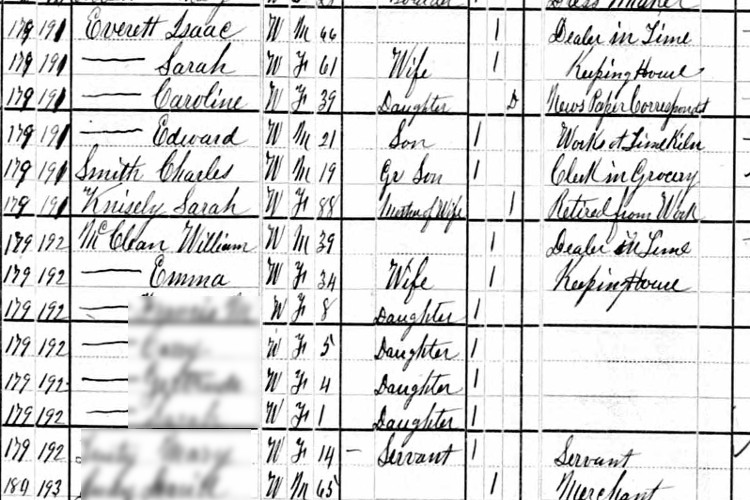 179 191 Everett Isaac W M 66 1 Dealer in Lime
179 191 — Sarah W F 61 Wife 1 Keeping House
179 191 — Caroline W F 39 Daughter D News Paper Correspondent
179 191 — Edward W M 21 Son 1 Works at Lime Kiln
179 191 Smith Charles W M 19 Gr Son 1 Clerk in Grocery
179 191 Knisely Sarah W F 88 Mother of Wife 1 Retired from Work
179 192 McClean William W M 39 1 Dealer in Lime
179 192 — Emma W F 34 Wife 1 Keeping House
179 192 — W F 8 Daughter 1
179 192 — W F 5 Daughter 1
179 192 — W F 4 Daughter 1
179 192 — W F 1 Daughter 1
179 192 W F 14 — Servant 1 Servant
180 193 W M 65 1 Merchant